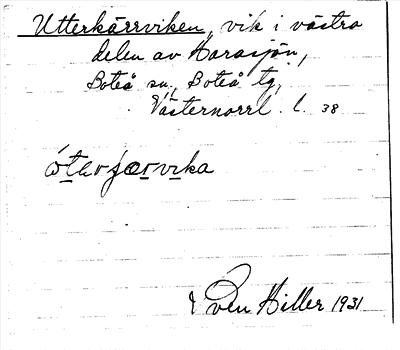 Utterkärrviken, vik i västra
delen av Harasjön,
Boteå sn, Boteå tg,
Västernorrl. l. 38
Sven Hiller 1931